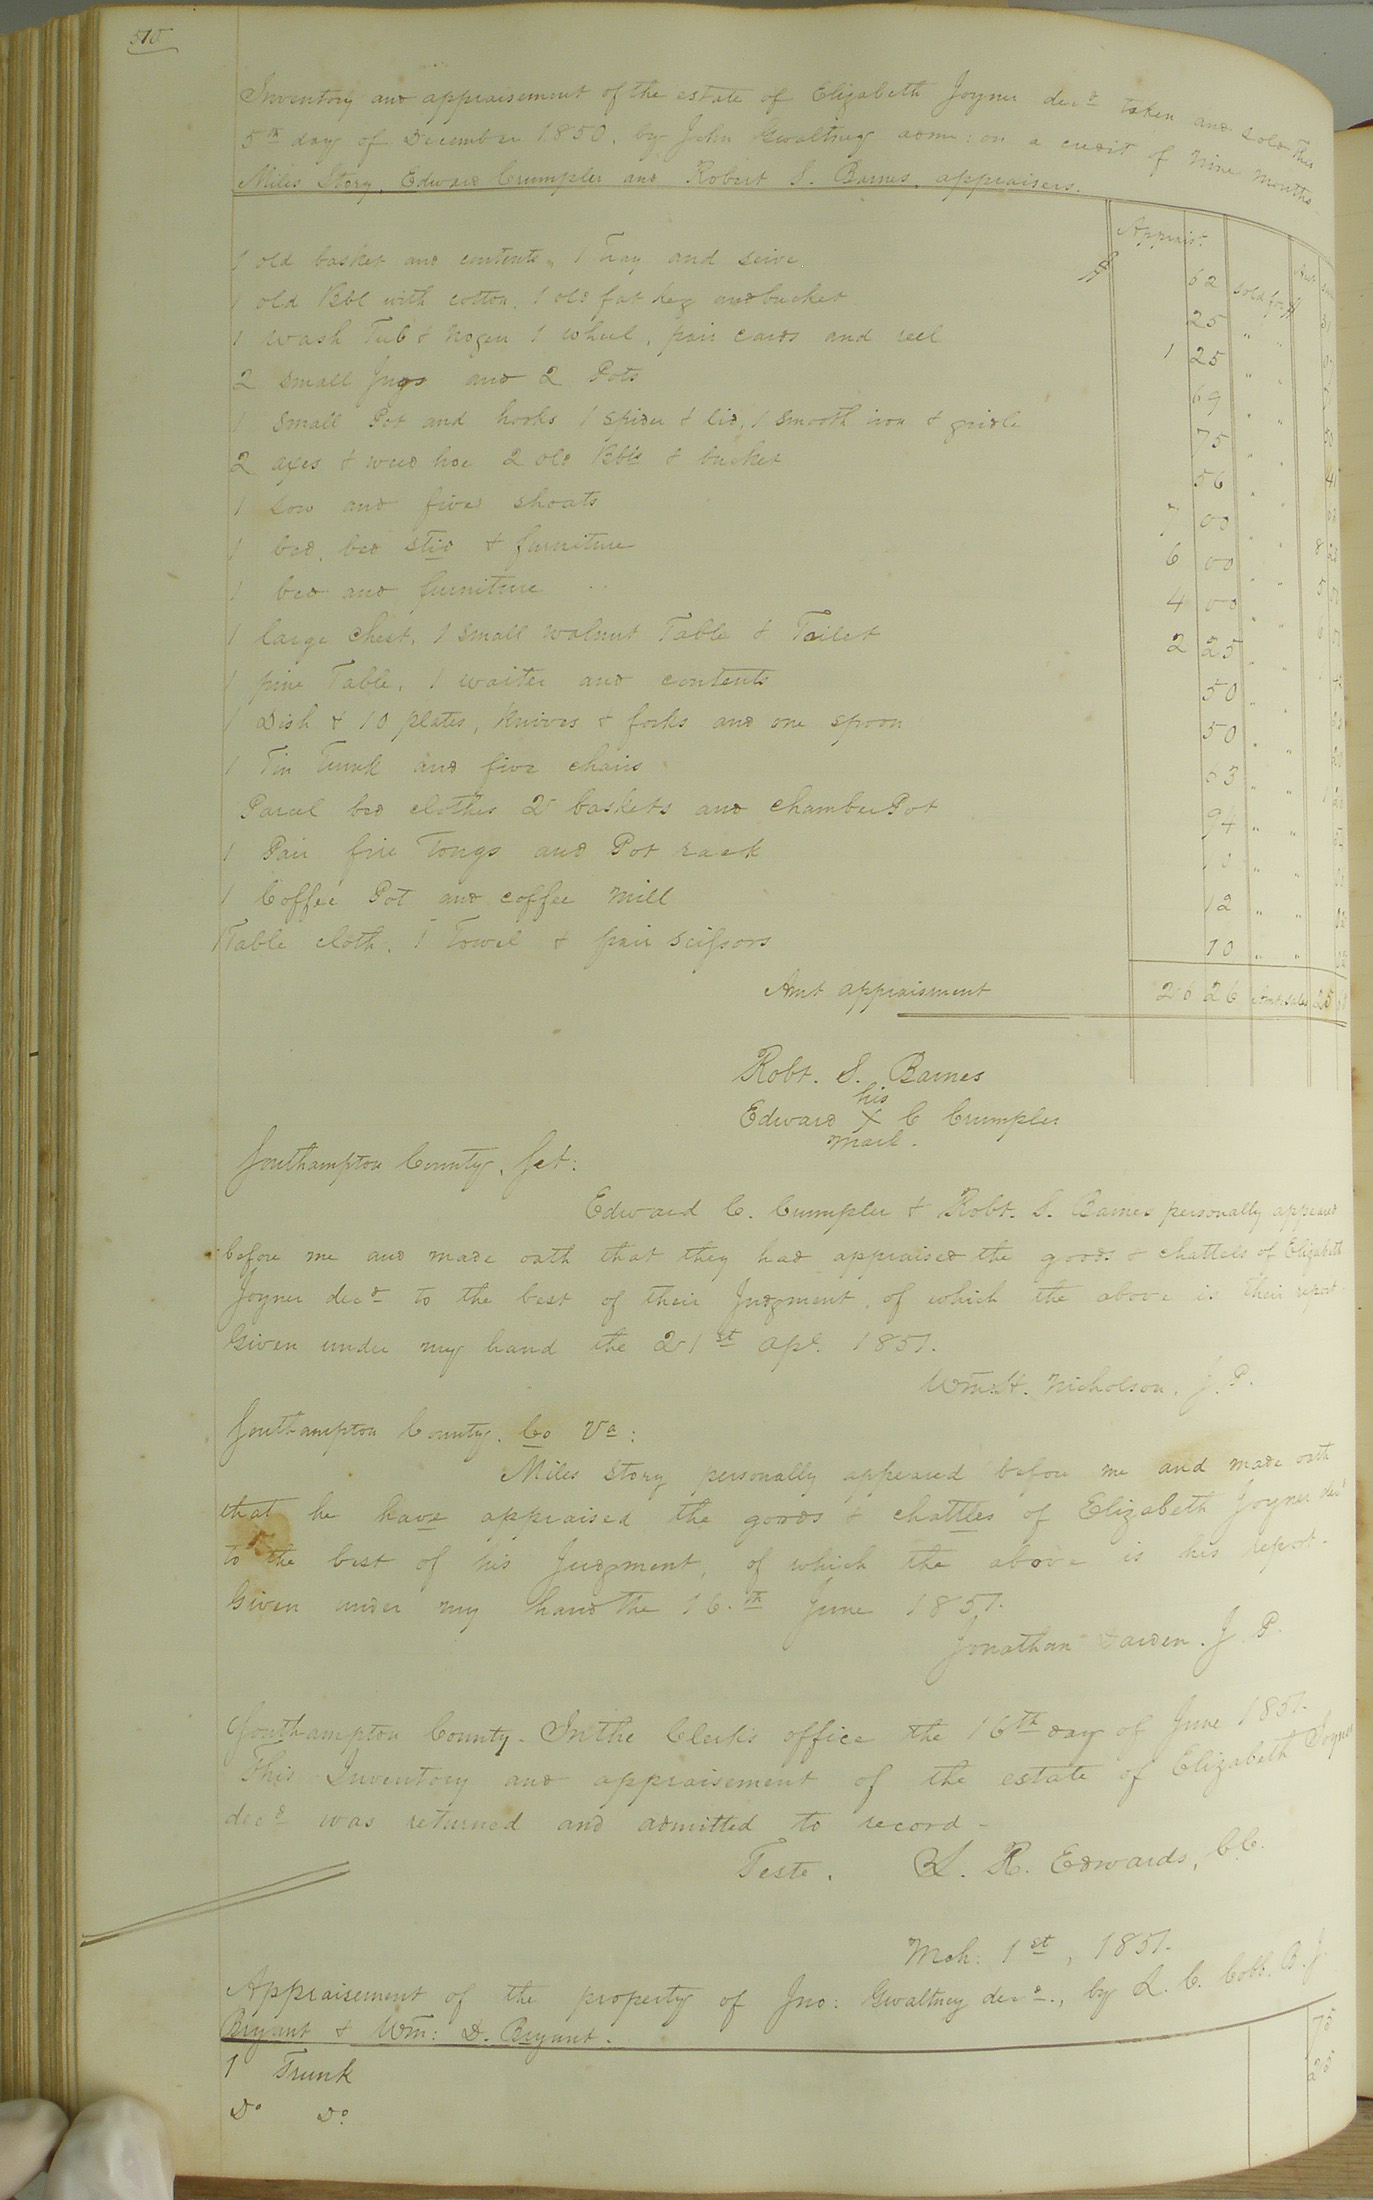 510
Inventory and appraisement of the estate of Elizabeth Joyner decd taken and sold this
5th day of December 1850. by John Gwaltney adm: on a credit of nine months
Miles Story, Edward Crumpler and Robert S. Barnes, appraisers.
Apprais:
1 old basket and contents, 1 Tray and seive $ 62 sold for $
1 old Bbl with cotton, 1 old fat keg and bucket 25 " "
1 wash Tub & nogen 1 wheel, pair cards and reel 1 25 " "
2 small Jugs and 2 Pots 69 " "
1 small Pot and hooks 1 spider & lid, 1 smooth iron & gridle 75 " "
2 axes & weed hoe 2 old Bbls & bucket 56 " "
1 sow and five shoats 7 00 " "
1 bed, bed stid & furniture 6 00 " "
1 bed and furniture 4 00 " "
1 large chest, 1 small walnut Table & Toilet 2 25 " "
1 pine Table, 1 waiter and contents 50 " "
1 Dish & 10 plates, knives & forks and one spoon 50 " "
1 Tin Trunk and five chairs 63 " "
Parcel bed clothes 2 baskets and chamber Pot 94 " "
1 Pair fire Tongs and Pot rack 10 " "
1 Coffee Pot and coffee mill 12 " "
1 Table cloth, 1 Towel & pair scissors 10 " "
Amt appraisment 26 26 Amt sales 25
Robt. S. Barnes
his
Edward X C Crumpler
mark.
Southampton County, Sct:
Edward C. Crumpler & Robt. S. Barnes personally appeared
before me and made oath that they had appraised the goods & chattels of Elizabeth
Joyner decd to the best of their Judgment, of which the above is their report.
Given under my hand the 21st Apl. 1851.
Wm. H. Nicholson, J. P.
Southampton County, Co Va:
Miles Story personally appeared before me and made oath
that he have appraised the goods & chattles of Elizabeth Joyner decd
to the best of his Judgment, of which the above is his report.
Given under my hand the 16.th June 1851.
Jonathan Darden. J. P.
Southampton County. In the Clerk's office the 16th day of June 1851.
This Inventory and appraisement of the estate of Elizabeth Joyner
decd was returned and admitted to record.
Teste. L. R. Edwards, C.C.
Mch. 1st, 1851.
Appraisement of the property of Jno: Gwaltney decd., by L. C. Cobb, B. J.
Bryant & Wm: D. Bryant.
1 Trunk 75
Do Do 25